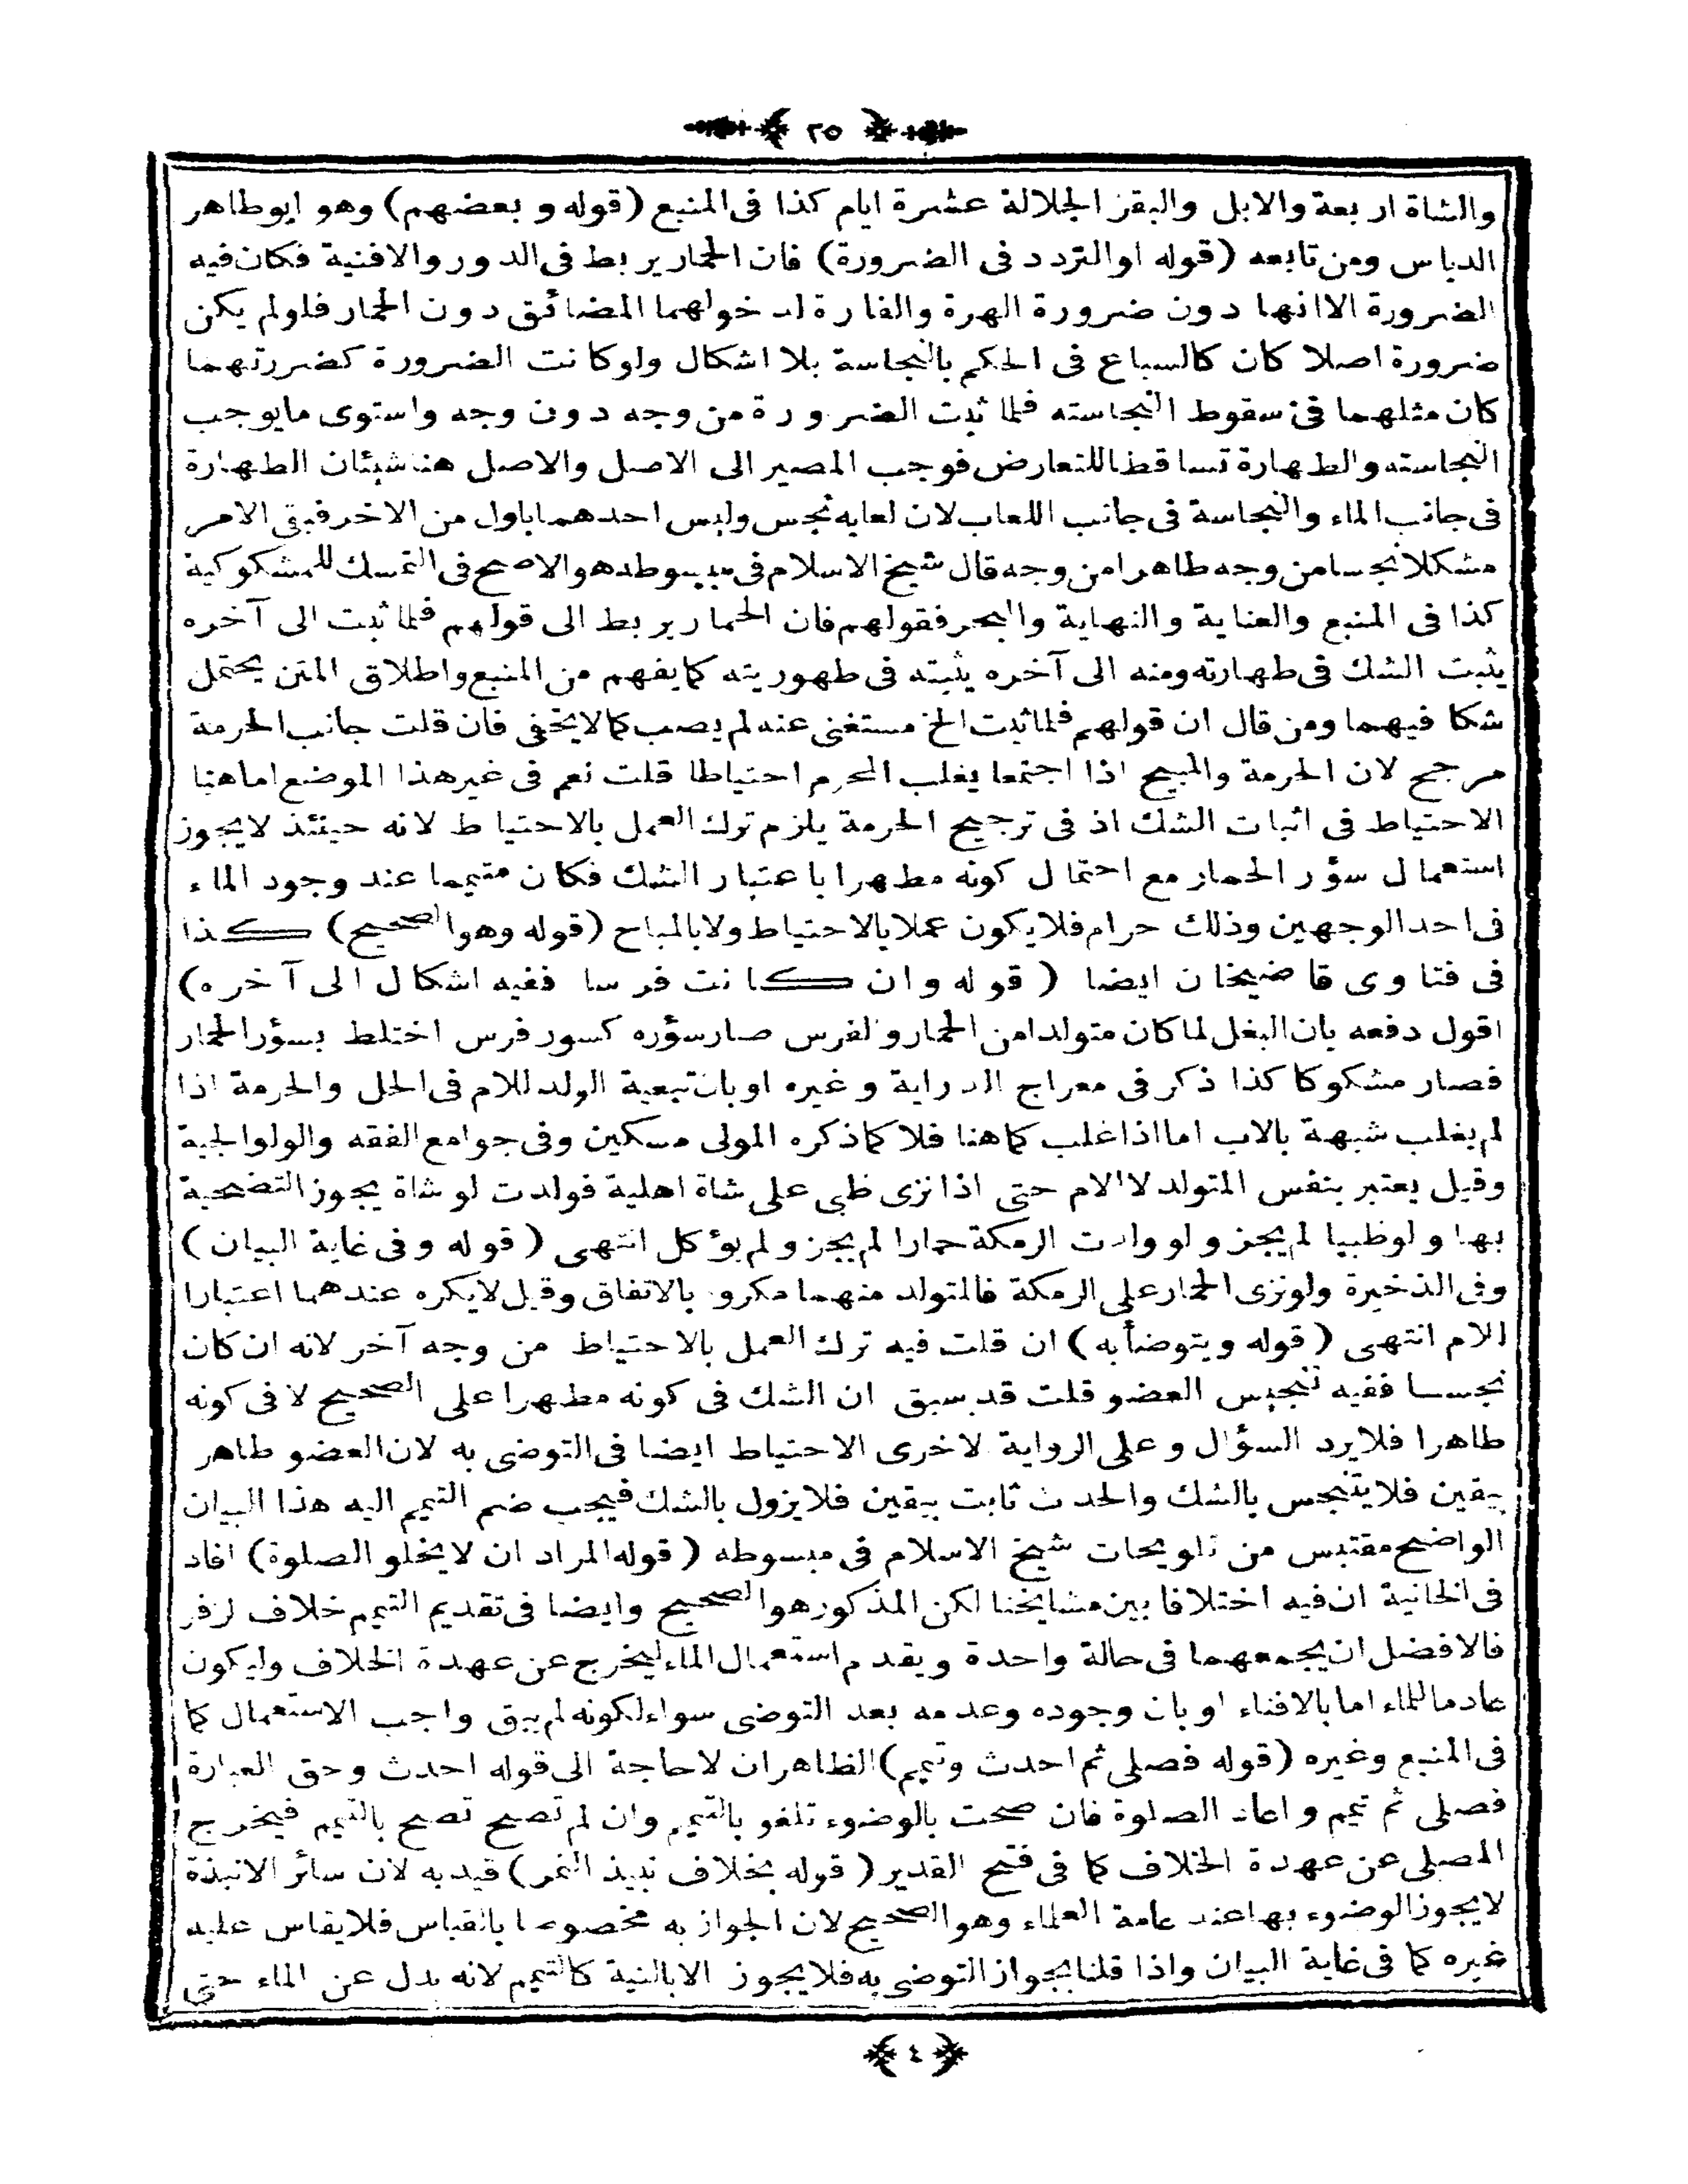 ٢٥
والشاة اربعة والابل والبقر الجلالة عشرة ايام كذا فى المنبع (قوله و بعضهم) وهو ابوطاهر
الدباس ومن تابعه (قوله او التردد فى الضرورة) فان الحمار يربط فى الدور والافنية فكان فيه
الضرورة الا انها دون ضرورة الهرة والفارة لدخولهما المضائق دون الحمار فلولم يكن
ضرورة اصلا كان كالسباع فى الحكم بالنجاسة بلا اشكال ولوكانت الضرورة كضررتهما
كان مثلهما فى سقوط النجاسته فلما ثبت الضرورة من وجه دون وجه واستوى مايوجب
النجاسته والطهارة تساقطا للتعارض فوجب المصير الى الاصل والاصل هنا شيئان الطهارة
فى جانب الماء والنجاسة فى جانب اللعاب لان لعابه نجس وليس احدهما باول من الاخر فبقى الامر
مشكلا نجسا من وجه طاهرا من وجه قال شيخ الاسلام فى مبسوطه هو الاصح فى التمسك للمشكوكية
كذا فى المنبع والعناية والنهاية والبحر فقولهم فان الحمار يربط الى قولهم فلما ثبت الى آخره
يثبت الشك فى طهارته ومنه الى آخره يثبته فى طهوريته كما يفهم من المنبع واطلاق المتن يحتمل
شكا فيهما ومن قال ان قولهم فلما ثبت الخ مستغنى عنه لم يصب كما لا يخفى فان قلت جانب الحرمة
مرجح لان الحرمة والمبيح اذا اجتمعا يغلب المحرم احتياطا قلت نعم فى غير هذا الموضع اما هنا
الاحتياط فى اثبات الشك اذ فى ترجيح الحرمة يلزم ترك العمل بالاحتياط لانه حينئذ لايجوز
استعمال سؤر الحمار مع احتمال كونه مطهرا باعتبار الشك فكان متيمما عند وجود الماء
فى احد الوجهين وذلك حرام فلا يكون عملا بالاحتياط ولا بالمباح (قوله وهو الصحيح) كذا
فى فتاوى قاضيخان ايضا (قوله وان كانت فرسا ففيه اشكال الى آخره)
اقول دفعه بان البغل لما كان متولدا من الحمار والفرس صار سؤره كسور فرس اختلط بسؤر الحمار
فصار مشكوكا كذا ذكر فى معراج الدراية وغيره او بان تبعية الولد للام فى الحل والحرمة اذا
لم يغلب شبهة بالاب اما اذا غلب كما هنا فلا كما ذكره المولى مسكين وفى جوامع الفقه والولوالجية
وقيل يعتبر بنفس المتولد لا الام حتى اذا نزى ظبى على شاة اهلية فولدت لو شاة يجوز التضحية
بها ولو ظبيا لم يجز ولو ولدت الرمكة حمارا لم يجز ولم يؤكل انتهى (قوله وفى غاية البيان)
وفى الذخيرة ولو نزى الحمار على الرمكة فالمتولد منهما مكروه بالاتفاق وقيل لا يكره عندهما اعتبارا
الام انتهى (قوله ويتوضأ به) ان قلت فيه ترك العمل بالاحتياط من وجه آخر لانه ان كان
نجسا ففيه تنجيس العضو قلت قد سبق ان الشك فى كونه مطهرا على الصحيح لا فى كونه
طاهرا فلا يرد السؤال وعلى الرواية لاخرى الاحتياط ايضا فى التوضى به لان العضو طاهر
بيقين فلا يتنجس بالشك والحدث ثابت بيقين فلا يزول بالشك فيجب ضم التيمم اليه هذا البيان
الواضح مقتبس من تلويحات شيخ الاسلام فى مبسوطه (قوله المراد ان لا يخلو الصلوة) افاد
فى الخانية ان فيه اختلافا بين مشايخنا لكن المذكور هو الصحيح وايضا فى تقديم التيمم خلاف لزفر
فالافضل ان يجمعهما فى حالة واحدة ويقدم استعمال الماء ليخرج عن عهدة الخلاف وليكون
عادما للماء اما بالافناء او بان وجوده وعدمه بعد التوضى سواء لكونه لم يبق واجب الاستعمال كما
فى المنبع وغيره (قوله فصلى ثم احدث وتيمم) الظاهر ان لا حاجة الى قوله احدث وحق العبارة
فصلى ثم تيمم واعاد الصلوة فان صحت بالوضوء تلغو بالتيمم وان لم تصح تصح بالتيمم فيخرج
المصلى عن عهدة الخلاف كما فى فتح القدير (قوله بخلاف نبيذ التمر) قيد به لان سائر الانبذة
لايجوز الوضوء بها عند عامة العلماء وهو الصحيح لان الجواز به مخصوصا بالقياس فلا يقاس عليه
غيره كما فى غاية البيان واذا قلنا بجواز التوضى به فلا يجوز الا بالنية كالتيمم لانه بدل عن الماء حتى
٤